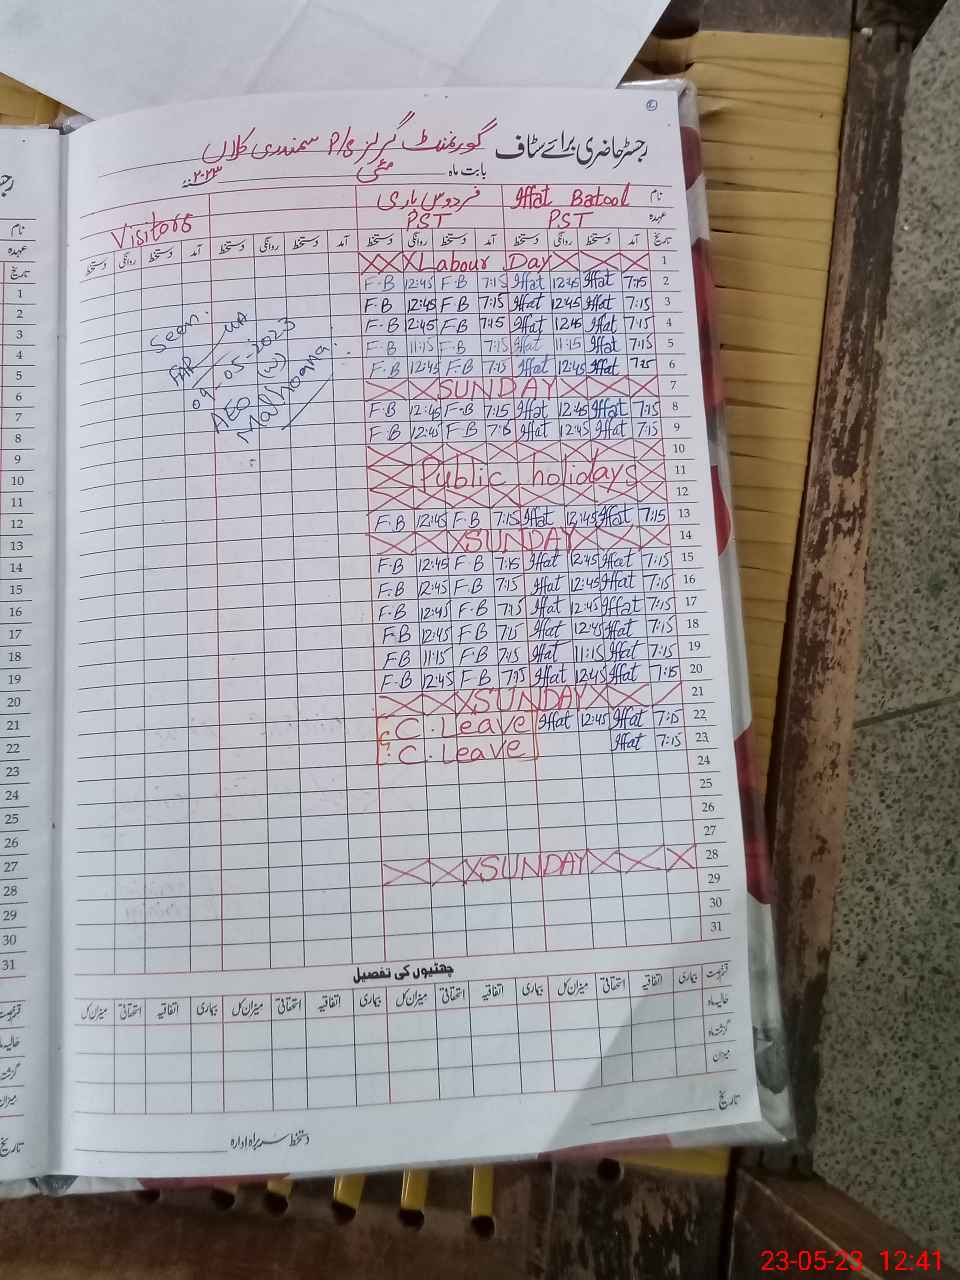 رجسٹر حاضری برائے سٹاف گورنمنٹ گرلز P/S سمندری کلاں
بابت ماہ مئی ۲۰۲۳ء
نام Iffat Batool فردوس باری Visitors
عہدہ PST PST
تاریخ آمد دستخط روانگی دستخط آمد دستخط روانگی دستخط آمد دستخط روانگی دستخط آمد دستخط روانگی دستخط
1 Labour Day
2 7:15 Iffat 12:45 Iffat 7:15 F-B 12:45 F-B
3 7:15 Iffat 12:45 Iffat 7:15 F-B 12:45 F-B
4 7:15 Iffat 12:45 Iffat 7:15 F-B 12:45 F-B
5 7:15 Iffat 11:15 Iffat 7:15 F-B 11:15 F-B
6 7:15 Iffat 12:45 Iffat 7:15 F-B 12:45 F-B
7 SUNDAY
8 7:15 Iffat 12:45 Iffat 7:15 F-B 12:45 F-B
9 7:15 Iffat 12:45 Iffat 7:15 F-B 12:45 F-B
10
11 Public holidays
12
13 7:15 Iffat 12:45 Iffat 7:15 F-B 12:45 F-B
14 SUNDAY
15 7:15 Iffat 12:45 Iffat 7:15 F-B 12:45 F-B
16 7:15 Iffat 12:45 Iffat 7:15 F-B 12:45 F-B
17 7:15 Iffat 12:45 Iffat 7:15 F-B 12:45 F-B
18 7:15 Iffat 12:45 Iffat 7:15 F-B 12:45 F-B
19 7:15 Iffat 11:15 Iffat 7:15 F-B 11:15 F-B
20 7:15 Iffat 12:45 Iffat 7:15 F-B 12:45 F-B
21 SUNDAY
22 7:15 Iffat 12:45 Iffat C. Leave
23 7:15 Iffat C. Leave
24
25
26
27
28 SUNDAY
29
30
31
Seen.
09-05-2023
AEO (W)
چھٹیوں کی تفصیل
قسم رخصت بیماری اتفاقیہ استحقاقی میزان کل بیماری اتفاقیہ استحقاقی میزان کل بیماری اتفاقیہ استحقاقی میزان کل بیماری اتفاقیہ استحقاقی میزان کل
حالیہ ماہ
گزشتہ ماہ
میزان
تاریخ
دستخط سربراہ ادارہ
نام
عہدہ
تاریخ
1
2
3
4
5
6
7
8
9
10
11
12
13
14
15
16
17
18
19
20
21
22
23
24
25
26
27
28
29
30
31
تاریخ
23-05-23 12:41